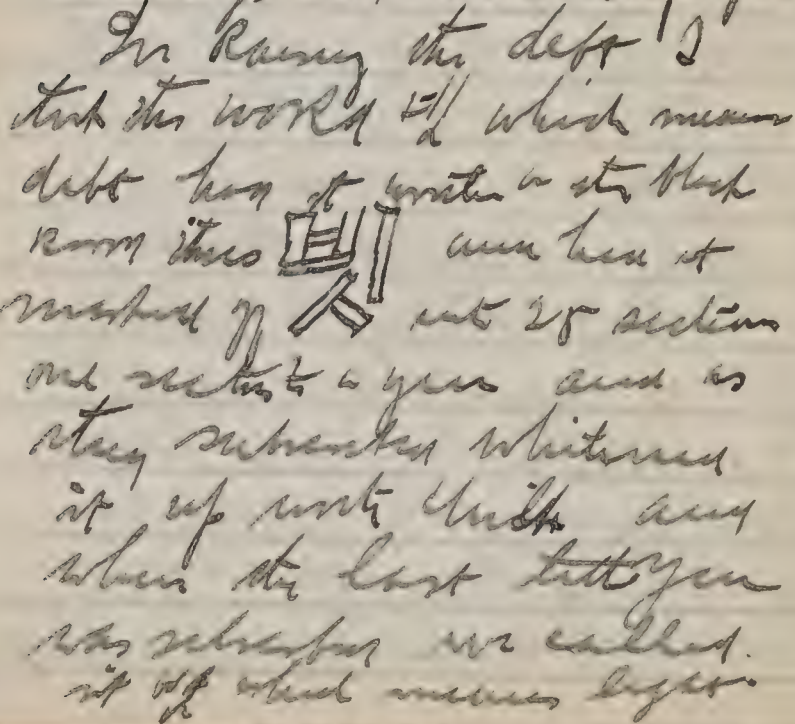 In Raising the debt I
took the word which means
debt had it written on the black
room thus and had it
marked off into 28 sections
one section to a year and as
they subscribed whitened
it up with chalk and
when the last little Yen
was subscribed we called
it off which means